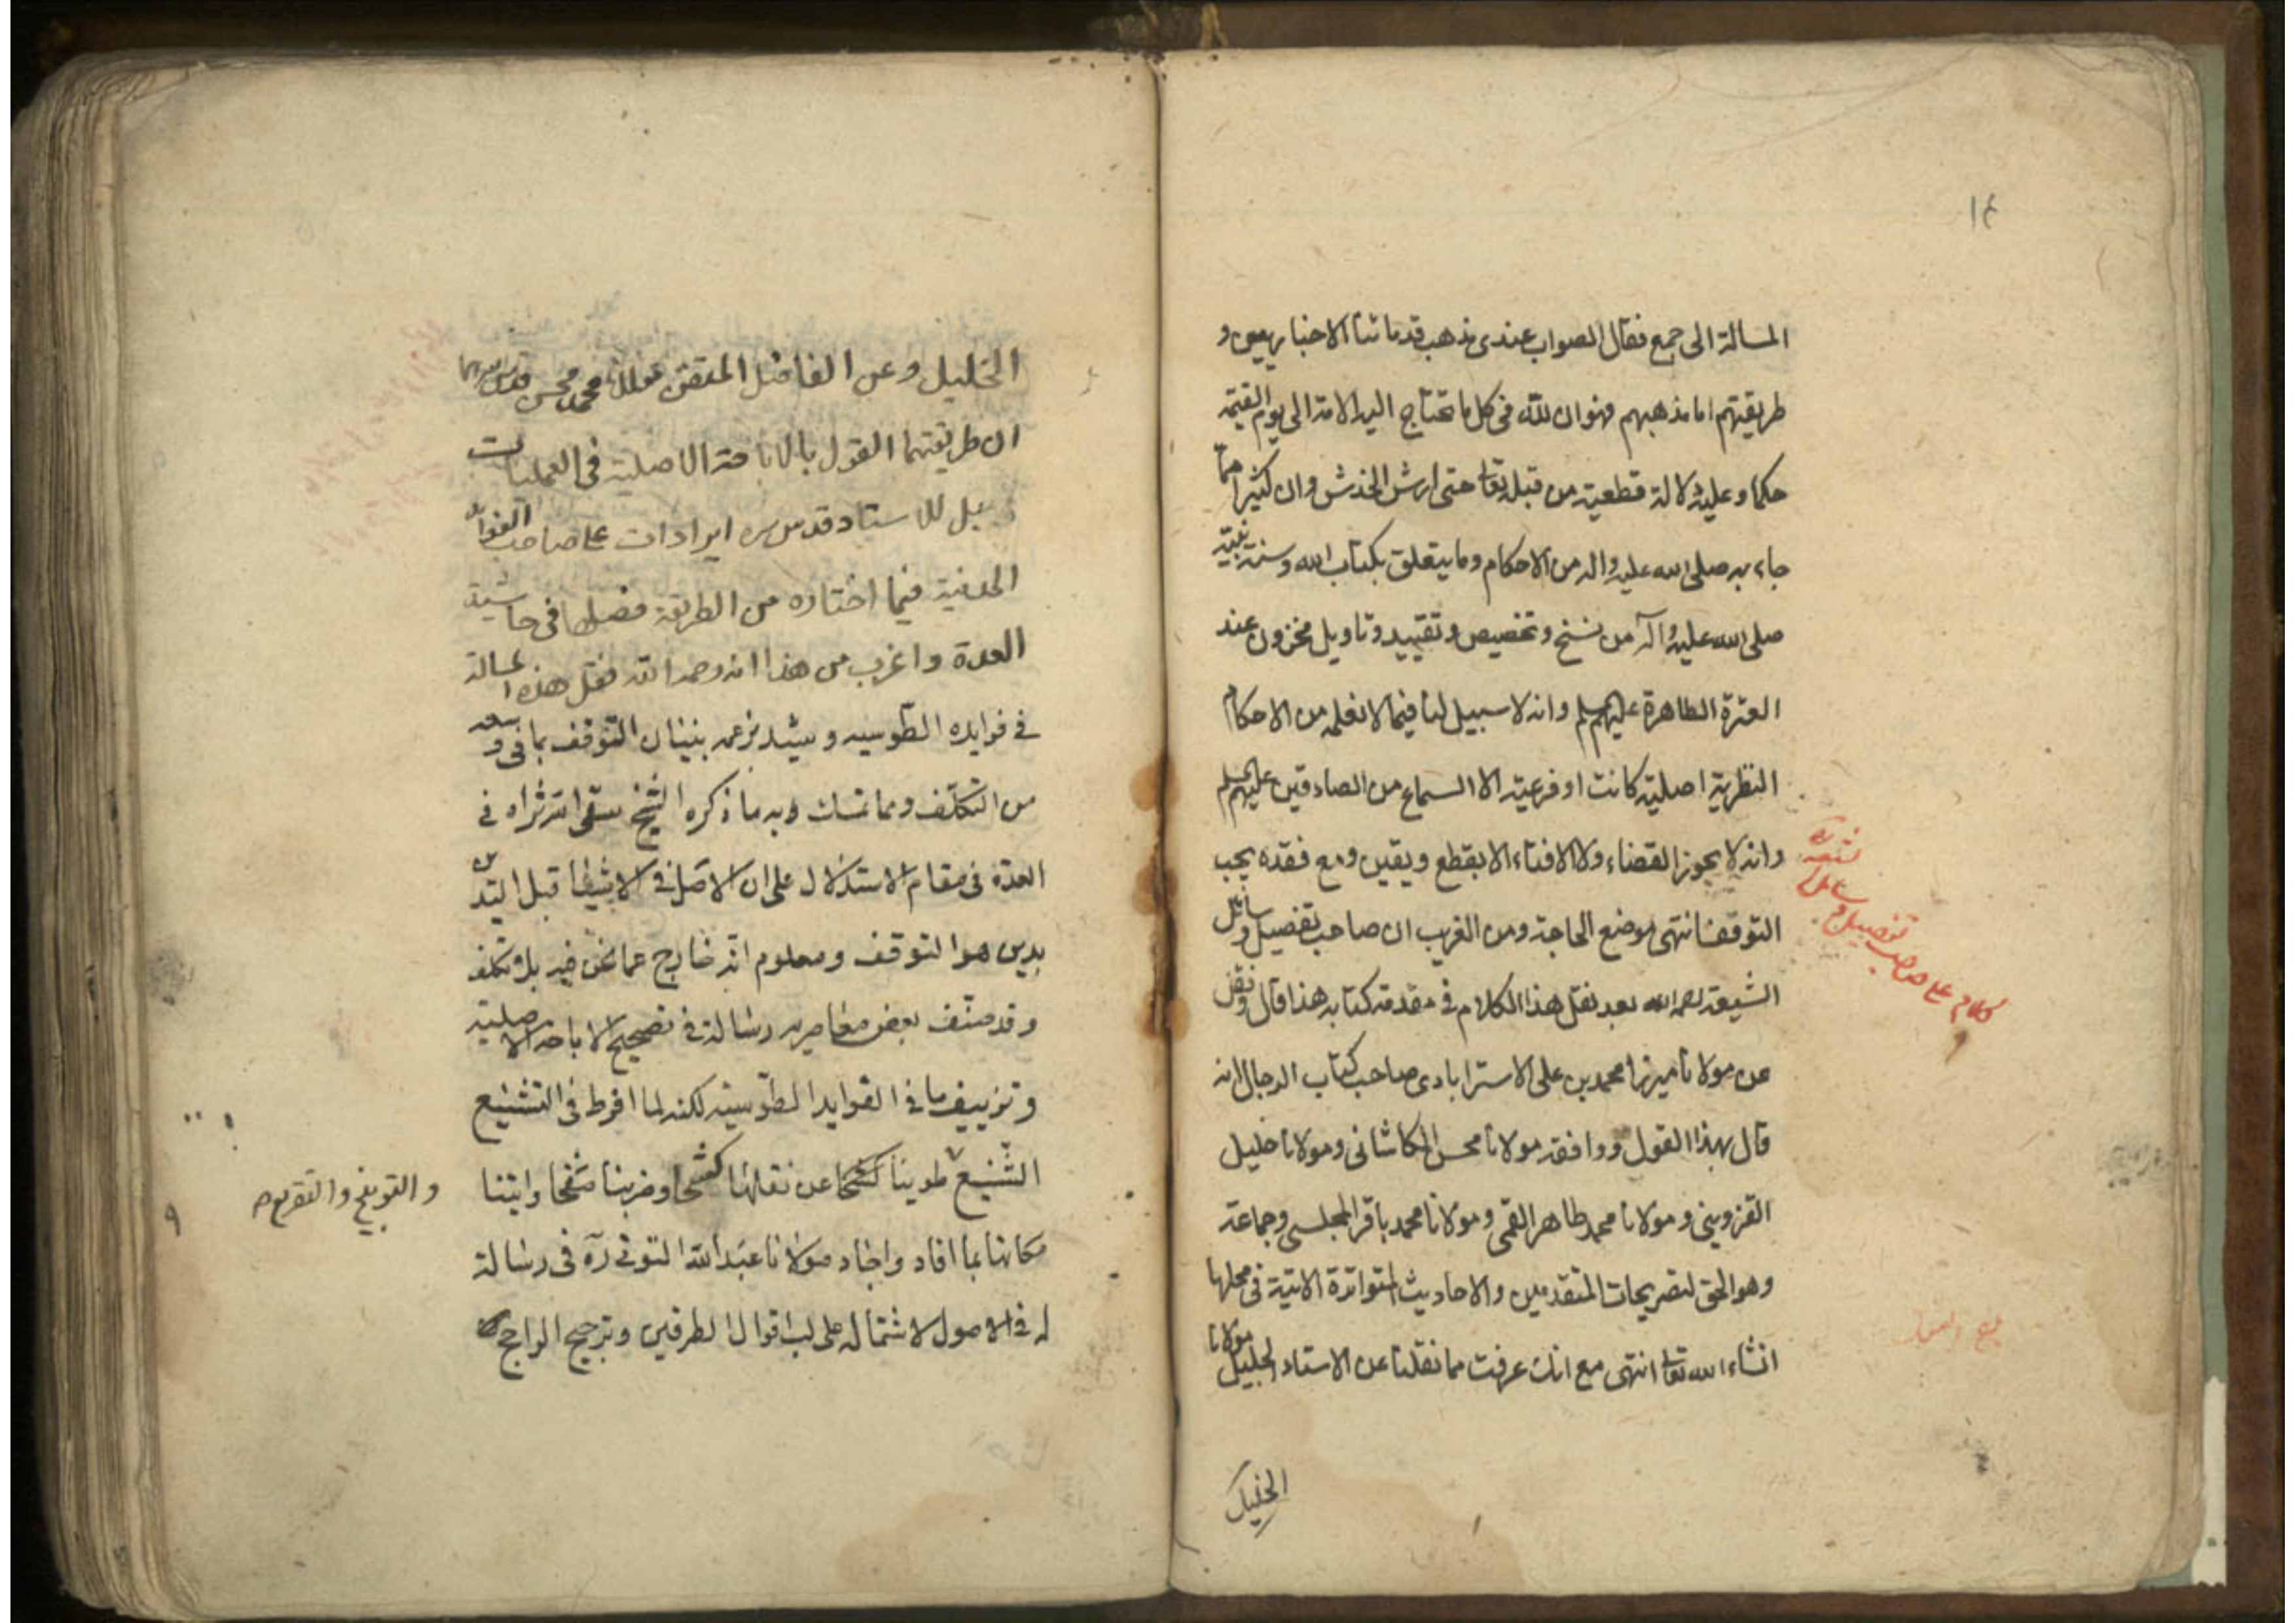 ١٤
المسالة الى جمع فقال الصواب عندى مذهب قدمائنا الاخباريين و
طريقتهم اما مذهبهم فهو ان لله فى كل ما تحتاج اليه الامة الى يوم القيمة
حكما وعليه دلالة قطعية من قبله تعا حتى ارش الخدش وان كثيرا مما
جاء به صلى الله عليه واله من الاحكام وما يتعلق بكتاب الله وسنة نبيه
صلى الله عليه وآله من نسخ وتخصيص وتقييد وتاويل مخزون عند
العترة الطاهرة عليهم لم وانه لا سبيل لنا فيما لا نعلمه من الاحكام
النظرية اصلية كانت او فرعية الا السماع من الصادقين عليهم لم
وانه لا يجوز القضاء ولا الافتاء الا بقطع ويقين ومع فقده يجب
التوقف انتهى موضع الحاجة ومن الغريب ان صاحب تفضيل وسائل
الشيعة رحمه الله بعد نقل هذا الكلام فى مقدمة كتابه هذا قال ونقل
عن مولانا ميرزا محمد بن على الاسترابادى صاحب كتاب الرجال انه
قال بهذا القول ووافقه مولانا محسن الكاشانى ومولانا خليل
القزوينى ومولانا محمد طاهر القمى ومولانا محمد باقر المجلسى وجماعة
وهو الحق لتصريحات المتقدمين والاحاديث المتواترة الاتية فى محلها
انشاء الله تعا انتهى مع انك عرفت مما نقلنا عن الاستاد الجليل مولانا
الخليل
كلام على صاحب تفصيل وسائل الشيعة ره
الخليل وعن الفاضل المتقن مولانا محمد محسن قدس سرهما
ان طريقتهما القول بالاباحة الاصلية فى العمليات
بل للاستاد قدس سره ايرادات على صاحب الفوائد
المدنية فيما اختاره من الطريقة فصلها فى حاشية
العدة واغرب من هذا انه رحمه الله نقل هذه المسالة
فى فوايده الطوسيه وشيد بزعمه بنيان التوقف بما فى وسعه
من التكلف ومما تمسك به ما ذكره الشيخ سقى الله ثراه فى
العدة فى مقام الاستدلال على ان الاصل فى الاشياء قبل التدين
بدين هو التوقف ومعلوم انه خارج عما نحن فيه بلا تكلف
وقد صنف بعض معاصريه رسالة فى تصحيح الاباحة الاصلية
وتزييف ما فى الفوايد الطوسية لكنه لما افرط فى التشنيع
الشنيع طوينا كشحا عن نقلها وضربنا صفحا واتينا
والتوبيخ والتقريع م
مكانها بما افاد واجاد مولانا عبد الله التونى ره فى رسالة
له فى الاصول لاشتماله على لب اقوال الطرفين وترجيح الراجح